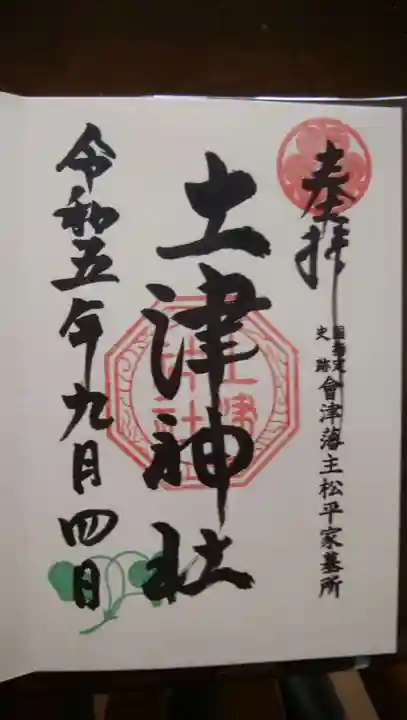 奉拝
國指定
史跡
會津藩主松平家墓所
土津神社
令和五年九月四日